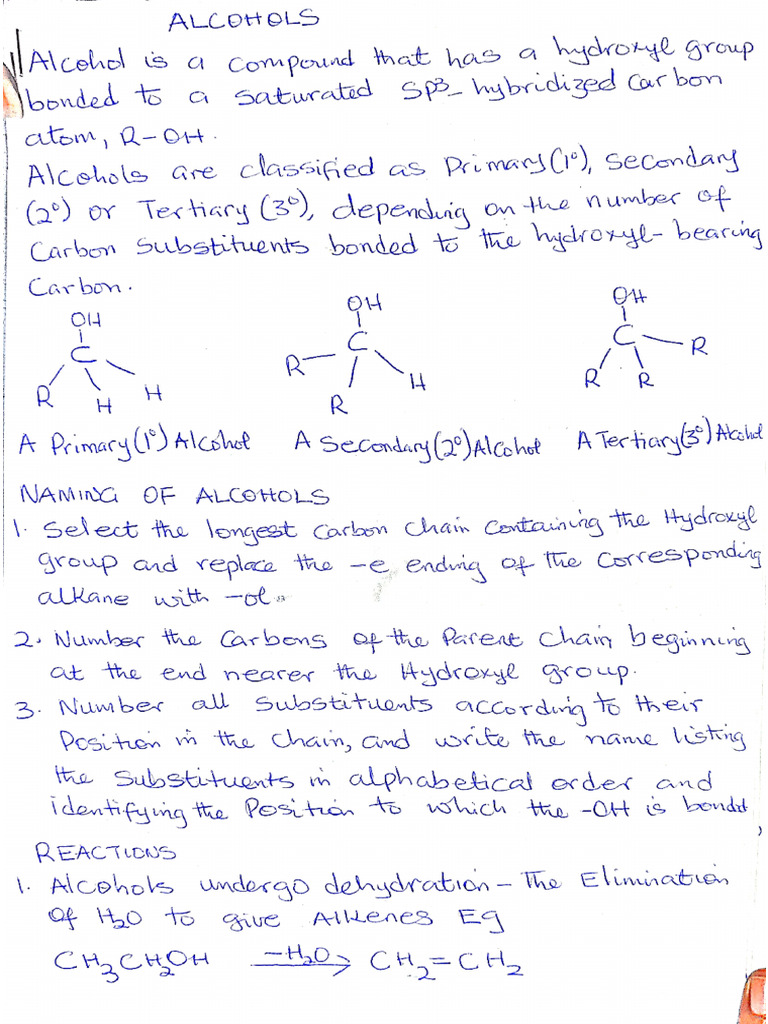 ALCOHOLS
Alcohol is a compound that has a hydroxyl group
bonded to a saturated SP³- hybridized Carbon
atom, R-OH.
Alcohols are classified as Primary (1°), Secondary
(2°) or Tertiary (3°), depending on the number of
Carbon Substituents bonded to the hydroxyl- bearing
Carbon.
OH OH OH
C C C
R H H R R H R R R
A Primary (1°) Alcohol A Secondary (2°) Alcohol A Tertiary (3°) Alcohol
NAMING OF ALCOHOLS
1. Select the longest Carbon Chain Containing the Hydroxyl
group and replace the -e ending of the Corresponding
alkane with -ol.
2. Number the Carbons of the Parent Chain beginning
at the end nearer the Hydroxyl group.
3. Number all Substituents according to their
Position in the Chain, and write the name listing
the Substituents in alphabetical order and
identifying the Position to which the -OH is bonded,
REACTIONS
1. Alcohols undergo dehydration - The Elimination
of H₂O to give Alkenes Eg
CH₃CH₂OH -H₂O→ CH₂=CH₂